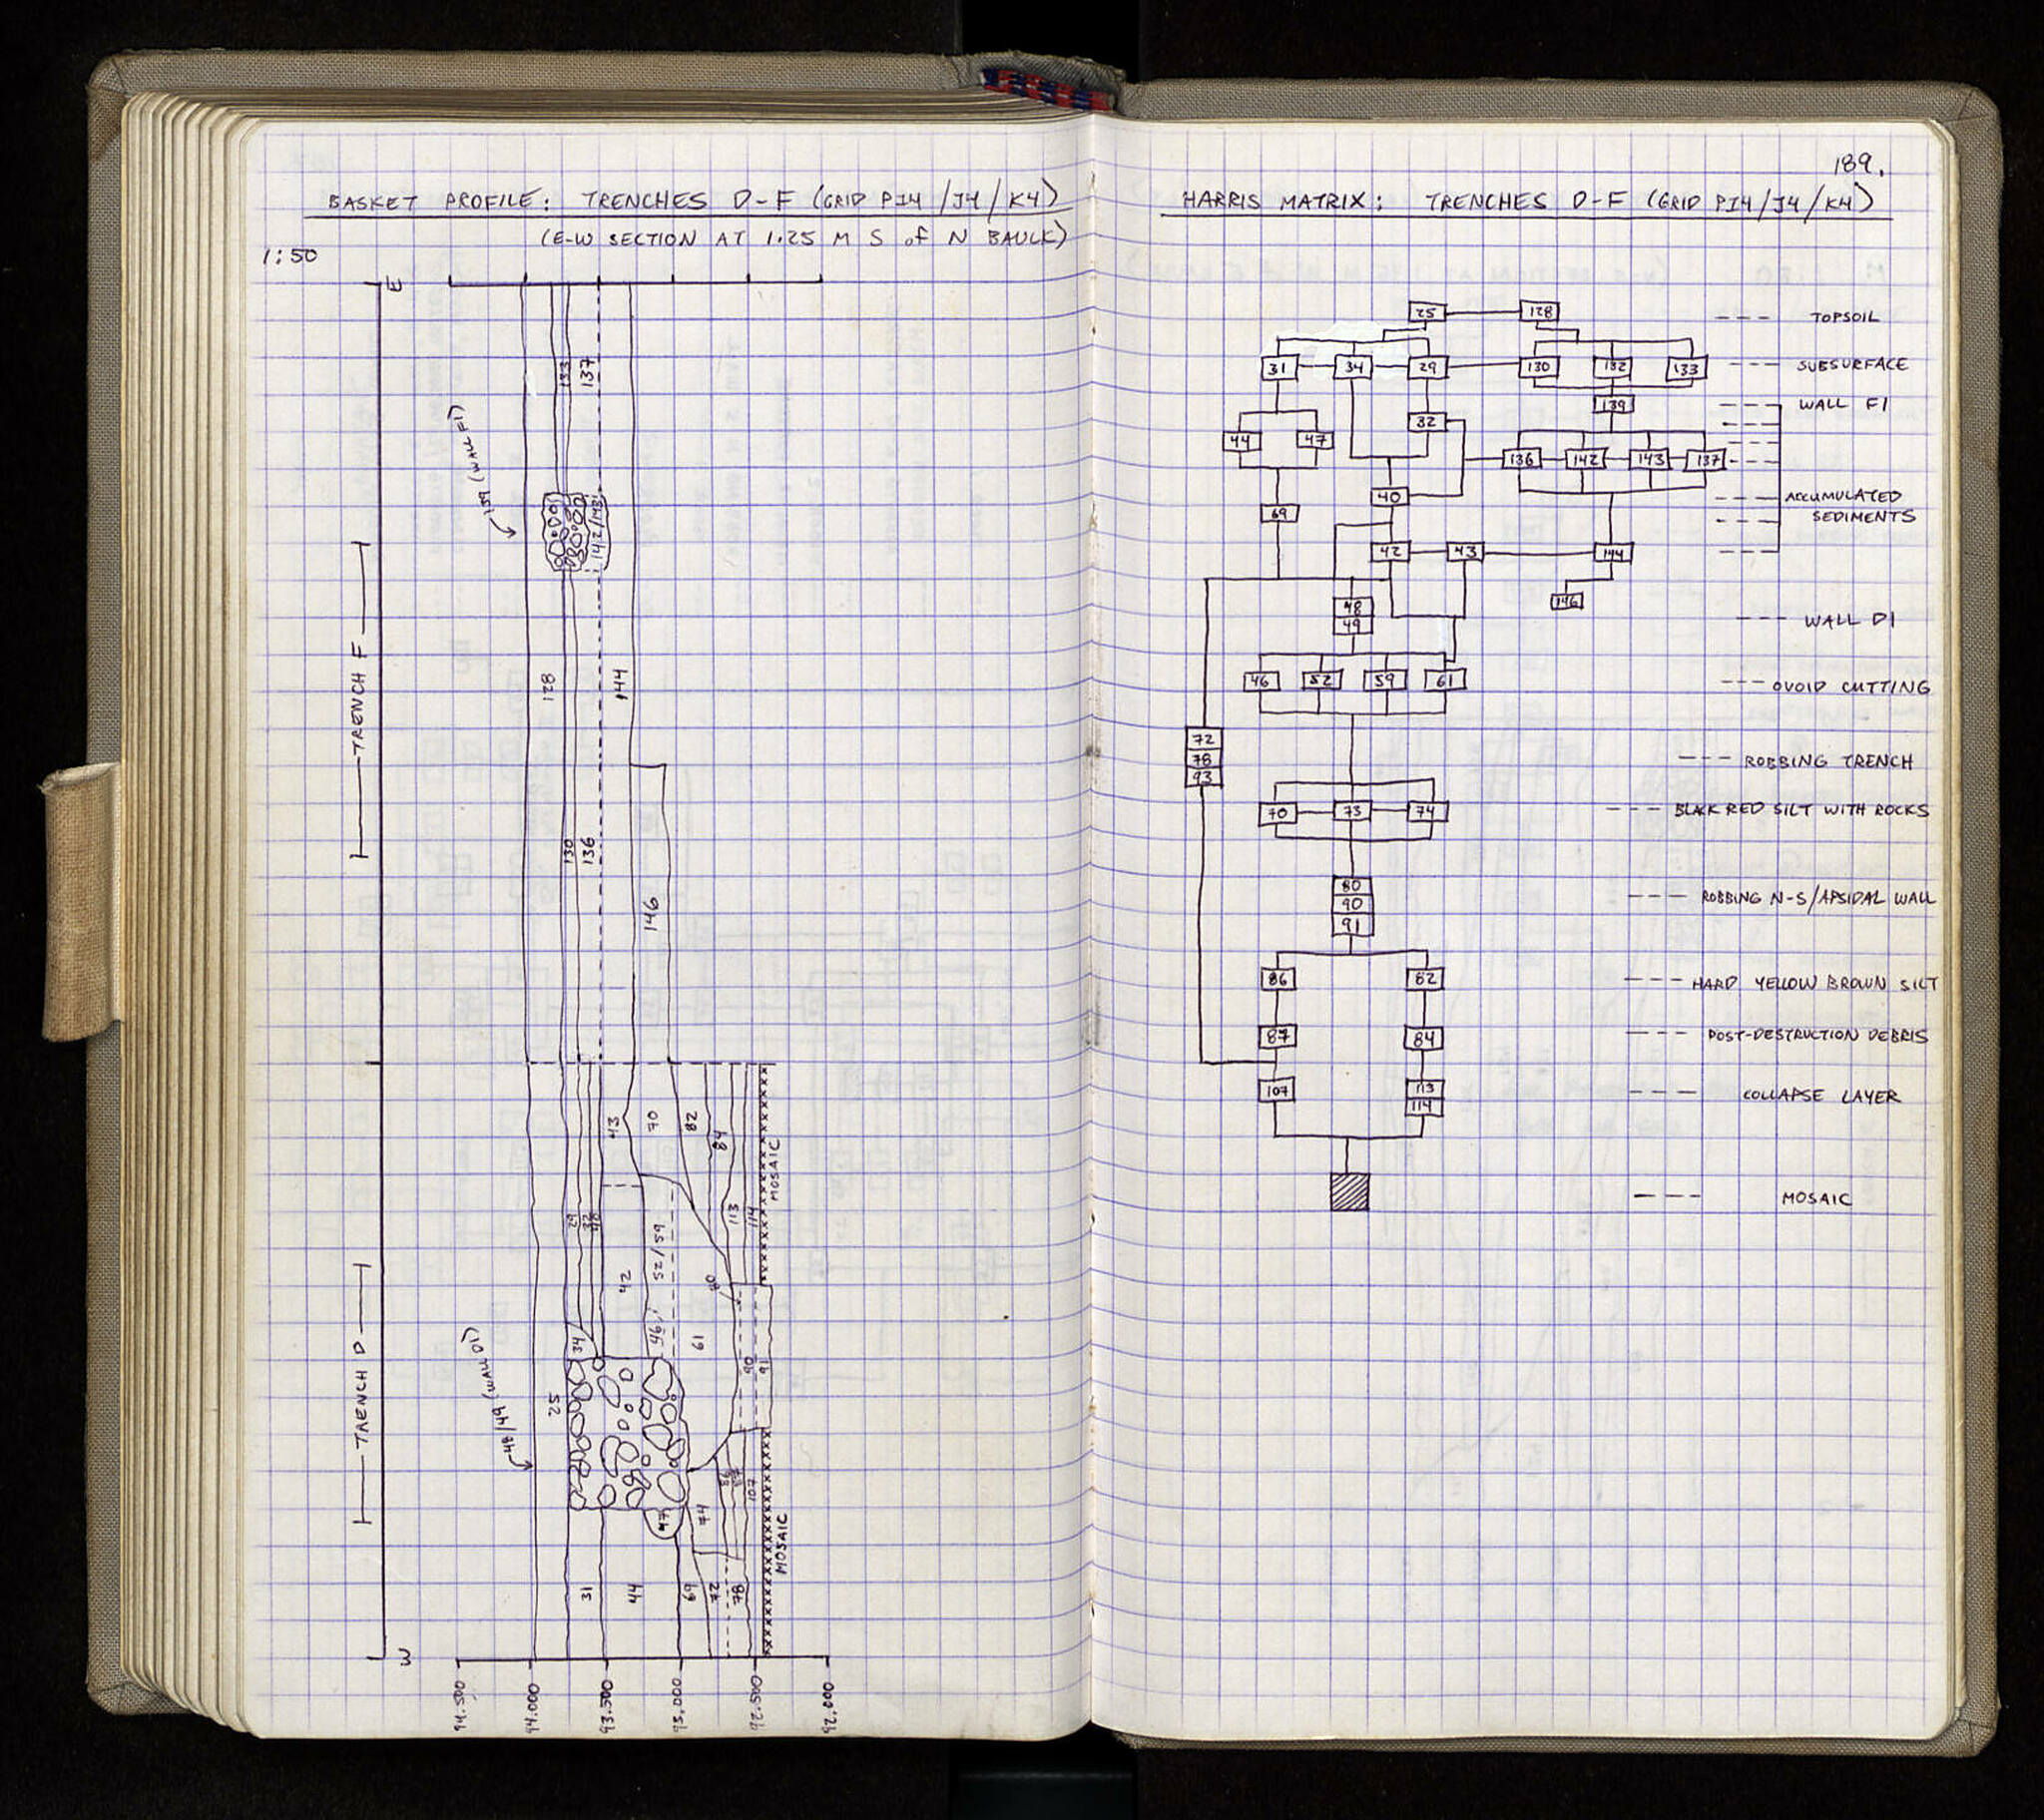 BASKET PROFILE: TRENCHES D-F (GRID PI4/J4/K4)
(E-W SECTION AT 1.25 M S of N BAULK)
1:50
E
133
137
139 (WALL F1)
142/143
TRENCH F
128
144
130
136
146
43
70
82
84
MOSAIC
29
32
40
113
114
42
52/59
46/
61
34
90
91
TRENCH D
25
48/49 (WALL D1)
47
74
107
MOSAIC
31
44
69
72
78
W
94.500
94.000
93.500
93.000
92.500
92.000
189.
HARRIS MATRIX: TRENCHES D-F (GRID PI4/J4/K4)
25 128 --- TOPSOIL
31 34 29 130 132 133 --- SUBSURFACE
139 --- WALL F1
32
44 47 136 142 143 137
40 --- ACCUMULATED
69 --- SEDIMENTS
42 43 144
146
48
49 --- WALL D1
46 52 59 61 --- OVOID CUTTING
72
78 --- ROBBING TRENCH
93
70 73 74 --- BLACK RED SILT WITH ROCKS
80
90 --- ROBBING N-S/APSIDAL WALL
91
86 82 --- HARD YELLOW BROWN SILT
87 84 --- POST-DESTRUCTION DEBRIS
107 113 --- COLLAPSE LAYER
114
--- MOSAIC